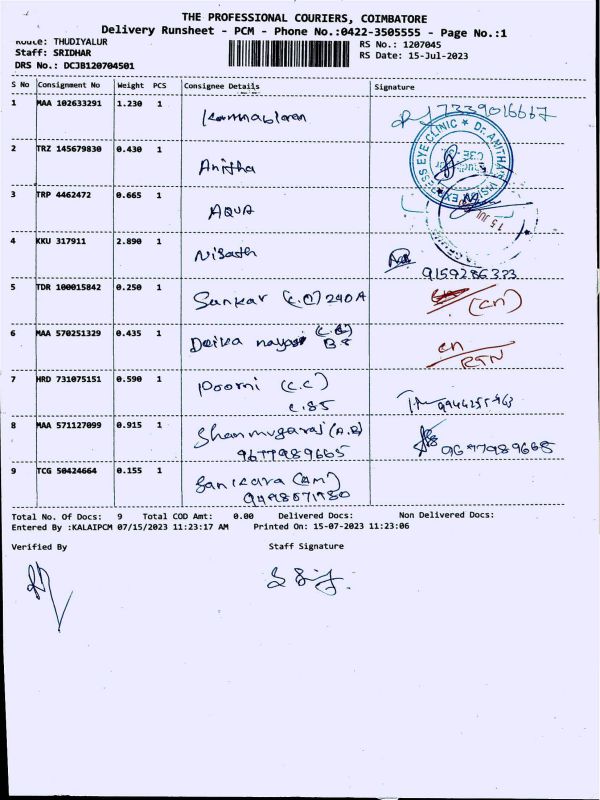 THE PROFESSIONAL COURIERS, COIMBATORE
Delivery Runsheet - PCM - Phone No.:0422-3505555 - Page No.:1
Route: THUDIYALUR
RS No.: 1207045
Staff: SRIDHAR
RS Date: 15-Jul-2023
DRS No.: DCJB120704501
S No Consignment No Weight PCS Consignee Details Signature
1 MAA 102633291 1.230 1
7339016667
2 TRZ 145679830 0.430 1 Anitha
EYE CLINIC * Dr. AMITHA'S
3 TRP 4462472 0.665 1 AQUA
15 JUL
4 KKU 317911 2.890 1 Nisanth
9159286333
5 TDR 100015842 0.250 1 Sankar (C.C) 240A (cn)
6 MAA 570251329 0.435 1
B8
cn
RTN
7 HRD 731075151 0.590 1 Poorni (C.C)
C.85
8 MAA 571127099 0.915 1 Shanmugaraj (A.B)
9677989665 9677989665
9 TCG 50424664 0.155 1
Total No. Of Docs: 9 Total COD Amt: 0.00 Delivered Docs: Non Delivered Docs:
Entered By :KALAIPCM 07/15/2023 11:23:17 AM Printed On: 15-07-2023 11:23:06
Verified By Staff Signature